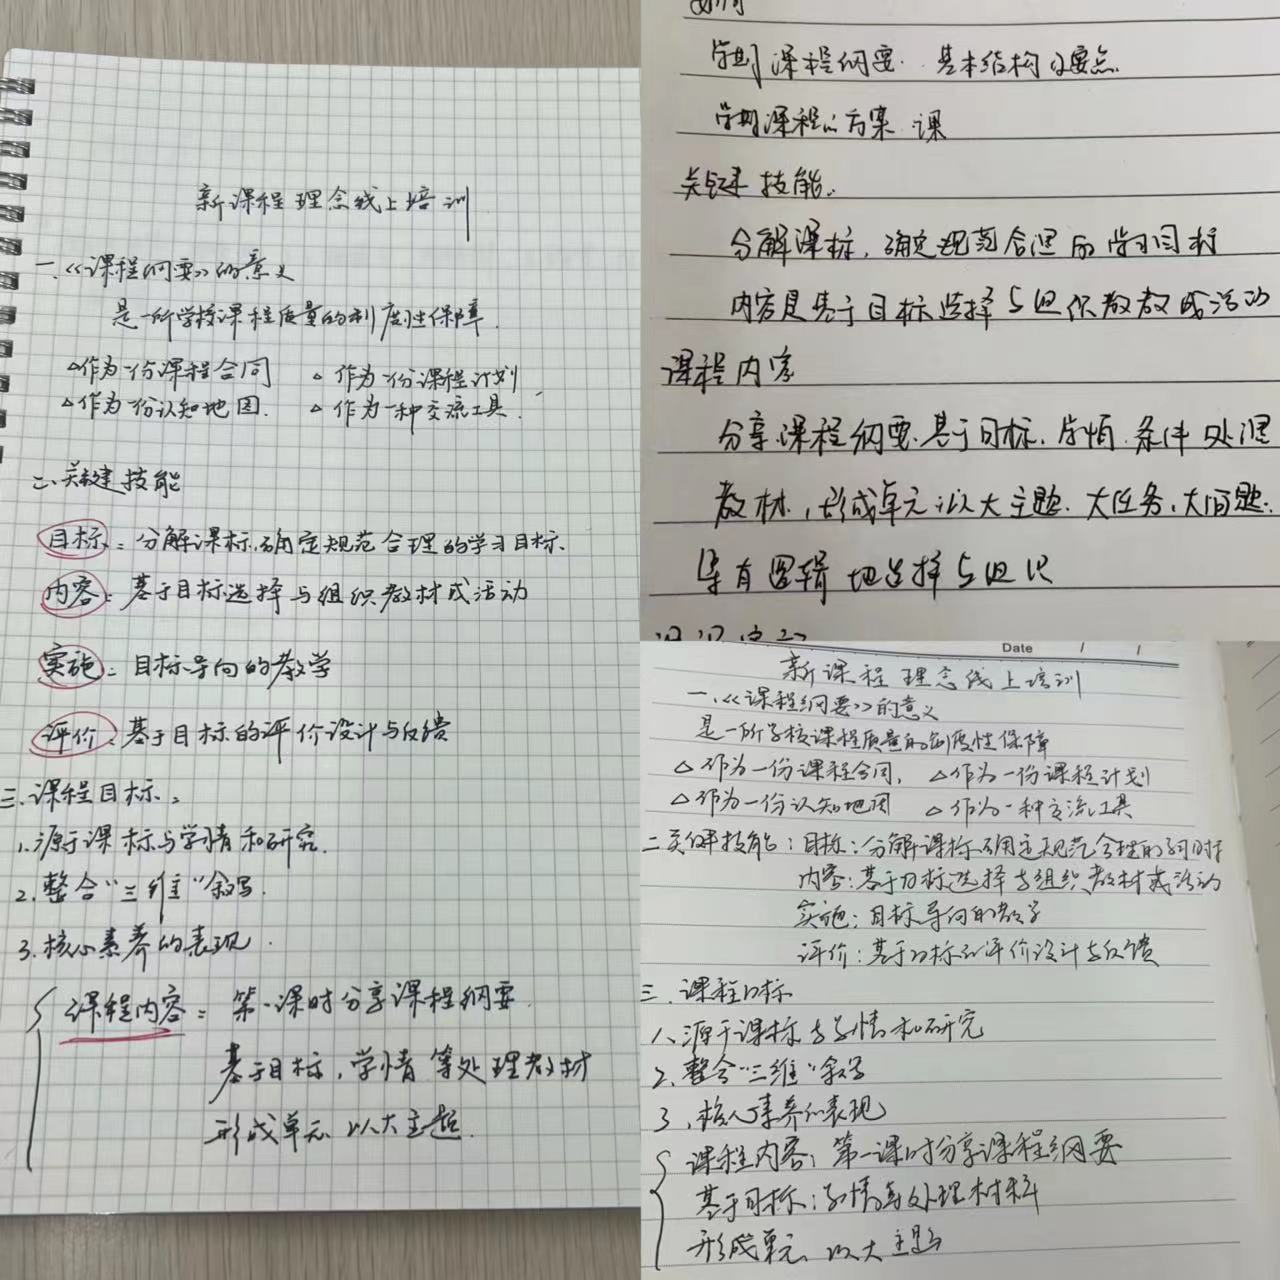 新课程理念线上培训
一.《课程纲要》的意义
是一所学校课程质量的制度性保障.
△作为一份课程合同 △作为一份课程计划
△作为一份认知地图. △作为一种交流工具.
二.关键技能
目标: 分解课标,确定规范合理的学习目标.
内容: 基于目标选择与组织教材或活动
实施: 目标导向的教学
评价: 基于目标的评价设计与反馈
三.课程目标:
1.源于课标与学情和研究.
2.整合"三维"叙写.
3.核心素养的表现.
课程内容: 第一课时分享课程纲要.
基于目标,学情等处理教材
形成单元 以大主题.
学期课程纲要. 基本结构及要点
学期课程的方案 课
关键技能.
分解课标,确定规范合理的学习目标
内容是基于目标选择与组织教 或活动
课程内容
分享课程纲要.基于目标.学情.条件处理
教材,形成单元以大主题.大任务,大问题.
等有逻辑地选择与组织
Date / /
新课程理念线上培训
一.《课程纲要》的意义
是一所学校课程质量的制度性保障
△作为一份课程合同, △作为一份课程计划
△作为一份认知地图 △作为一种交流工具
二关键技能: 目标: 分解课标,确定规范合理的学习目标
内容: 基于目标选择与组织教材或活动
实施: 目标导向的教学
评价: 基于目标的评价设计与反馈
三.课程目标
1.源于课标与学情和研究
2.整合"三维"叙写
3.核心素养的表现
课程内容: 第一课时分享课程纲要
基于目标:学情等处理材料
形成单元,以大主题